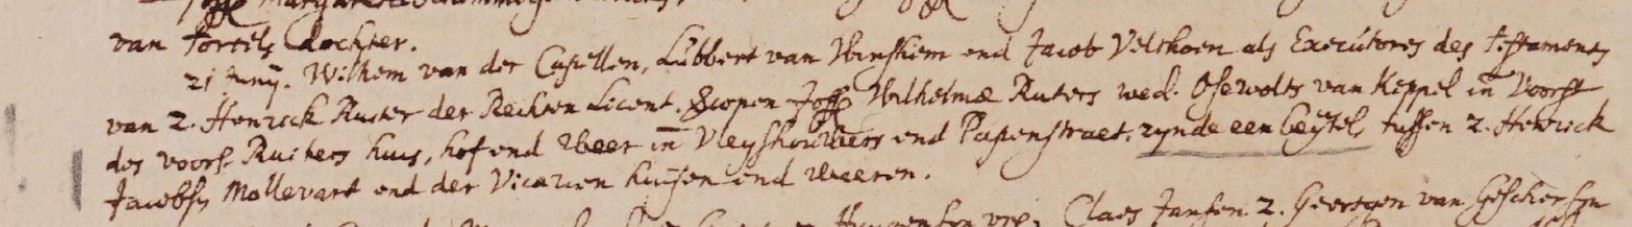 van Torcels dochter.
21 Juny. Wilhem van der Capellen, Lubbert van Winshem end Jacob Velthoen als Executores des Testaments
van z. Henrick Ruter der Rechten Licent. Scopen Joffr Wilhelmæ Ruters wed. Osewolts van Keppel in Voorst
des voors. Ruiters huis, hof end Weer in Vleyshouwers end Papenstraet. zynde een beytel, tussen z. Henrick
Jacobsz Mollevart end der Vicarien huysen end Weeren.
Claes Jansen z. Geertgen van